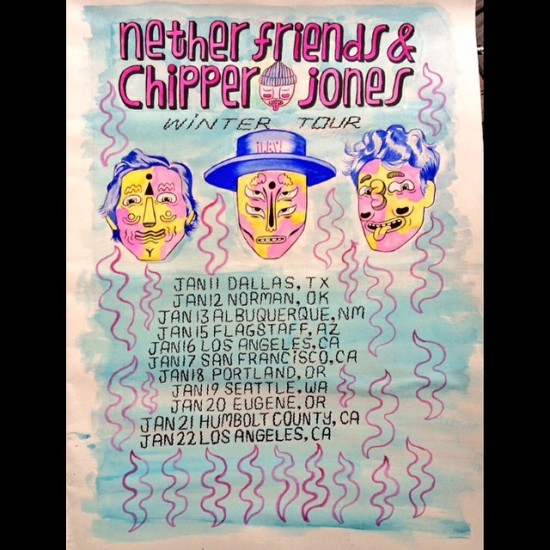 nether friends &
Chipper jones
WiNTER TOUR
JAN 11 DALLAS, TX
JAN 12 NORMAN, OK
JAN 13 ALBUQUERQUE, NM
JAN 15 FLAGSTAFF, AZ
JAN 16 LOS ANGELES, CA
JAN 17 SAN FRANCiSCO, CA
JAN 18 PORTLAND, OR
JAN 19 SEATTLE, WA
JAN 20 EUGENE, OR
JAN 21 HUMBOLT COUNTY, CA
JAN 22 LOS ANGELES, CA